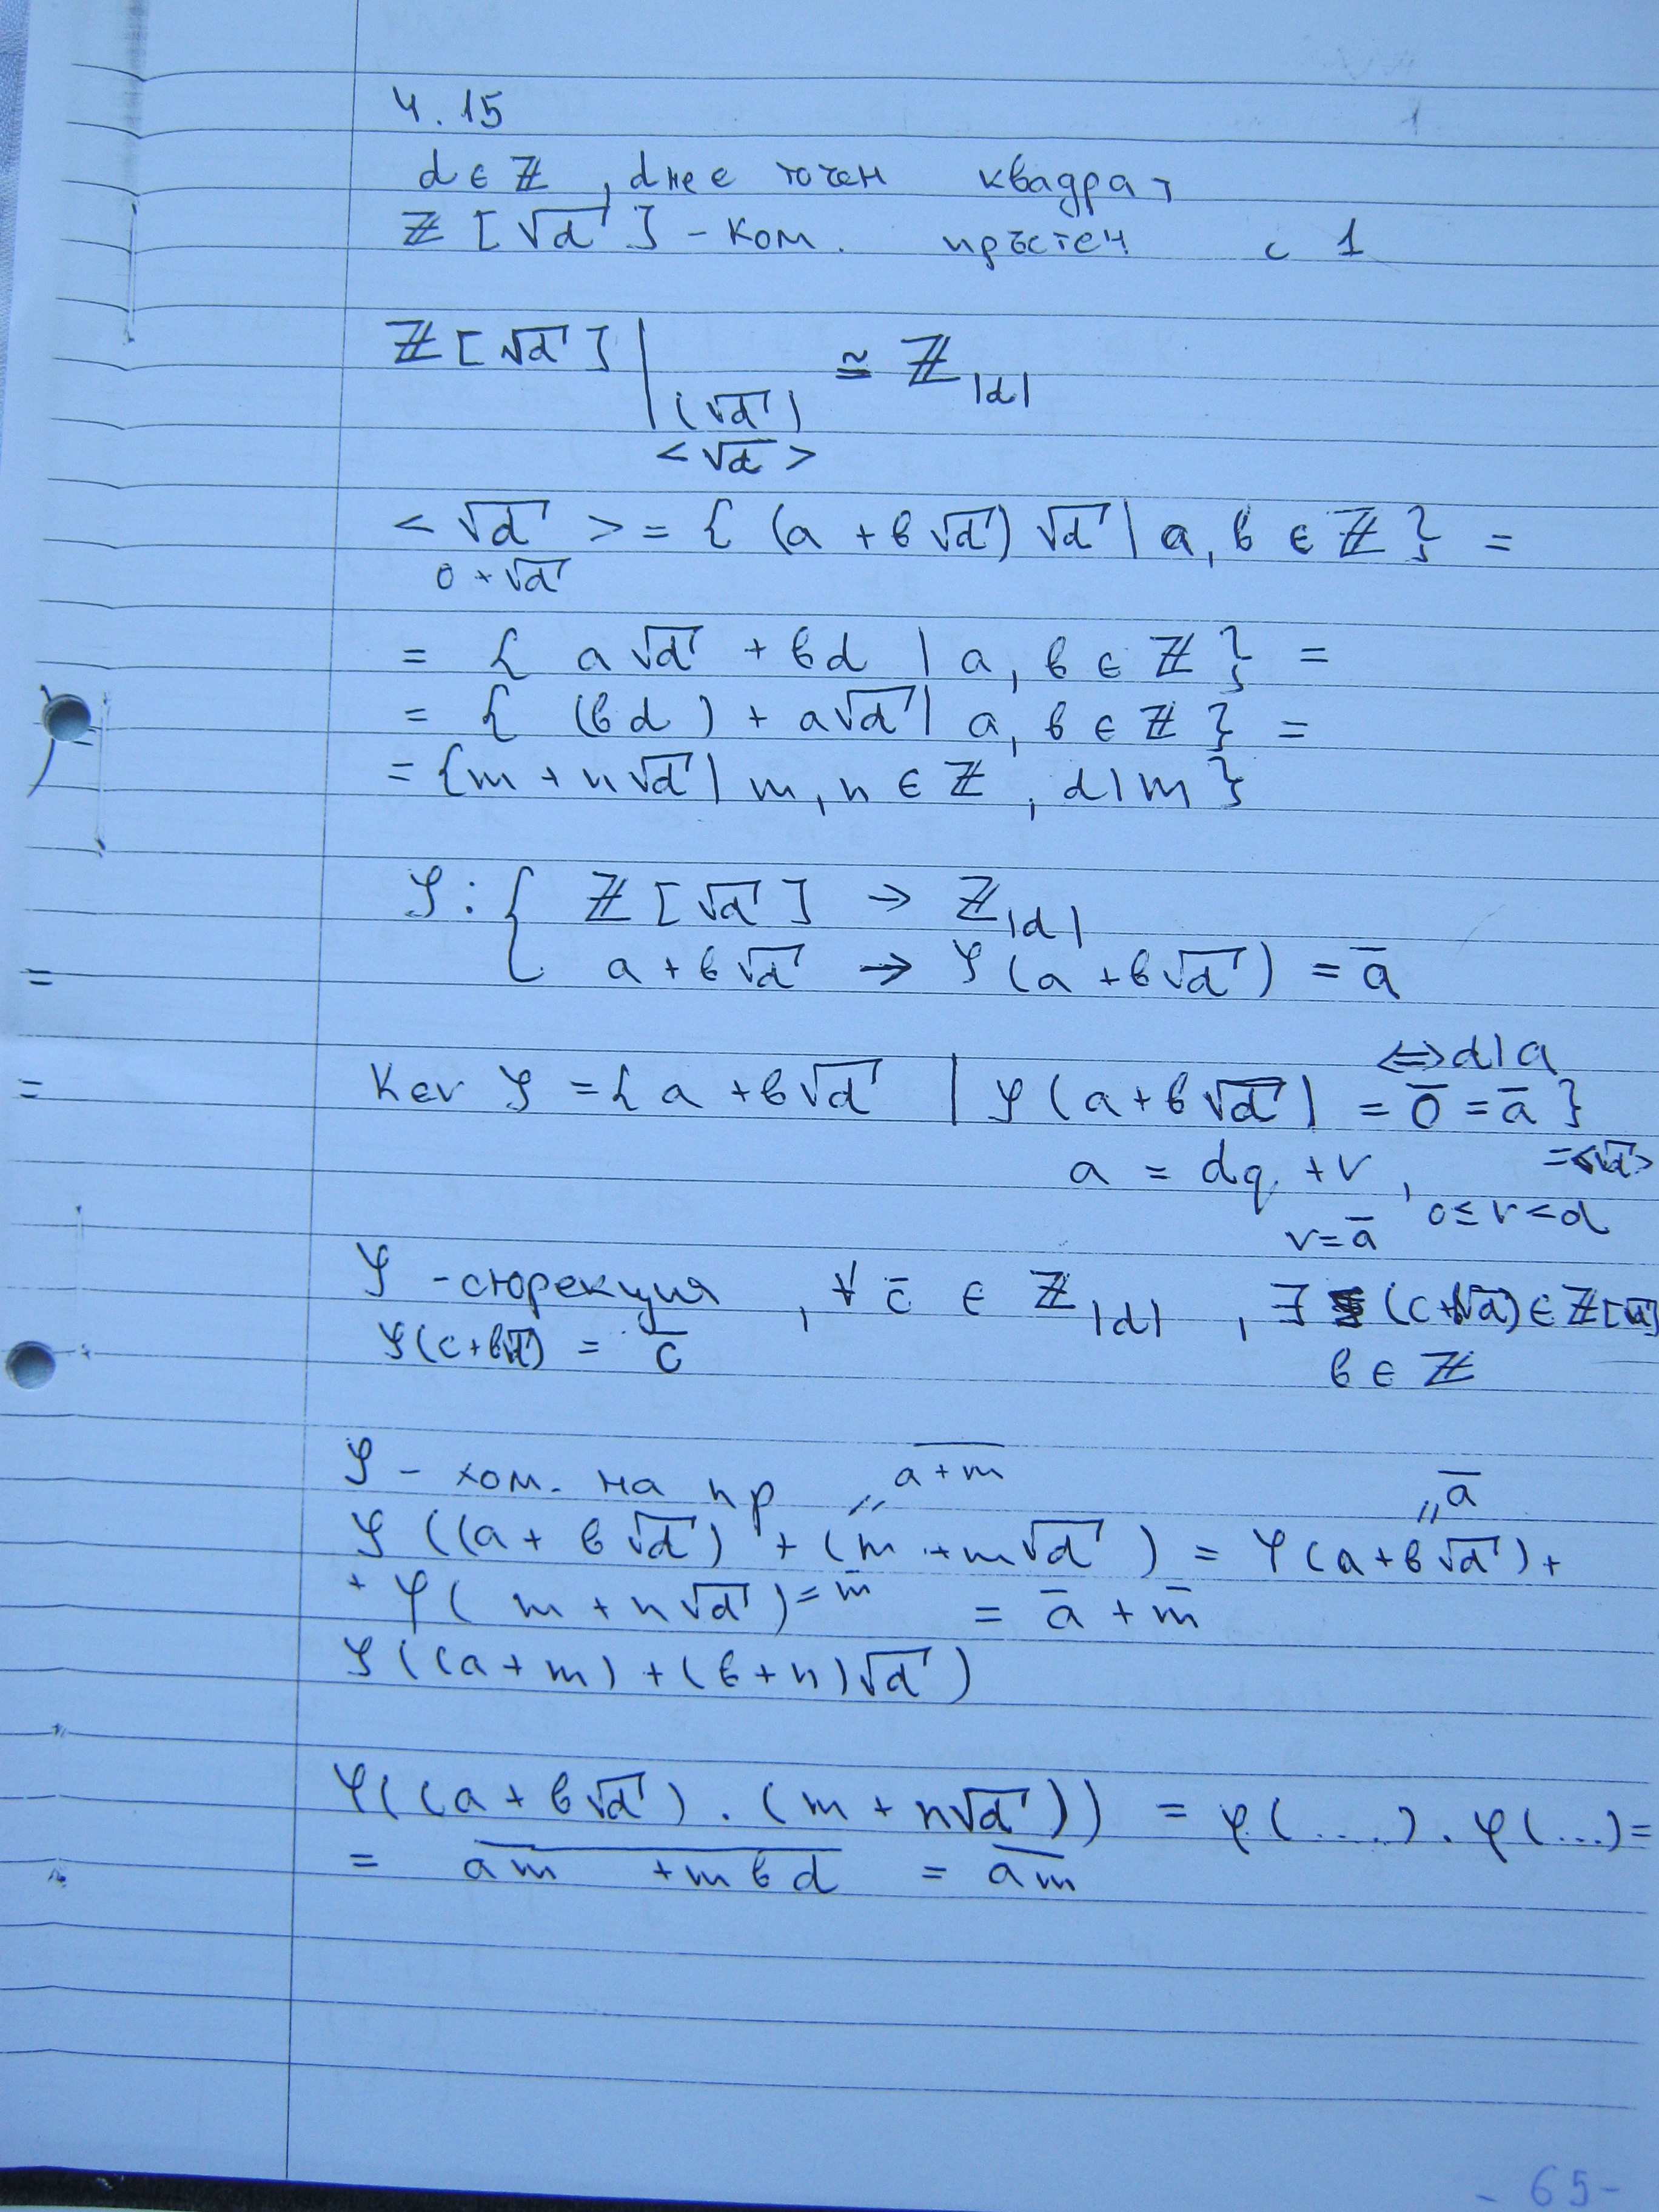 4.15
d ∈ ℤ, d не е точен квадрат
ℤ[√d] - ком. пръстен с 1
ℤ[√d] | (√d) ≅ ℤ|d|
<√d>
<√d> = { (a + b√d) √d | a, b ∈ ℤ } =
0 + √d
= { a√d + bd | a, b ∈ ℤ } =
= { (bd) + a√d | a, b ∈ ℤ } =
= {m + n√d | m, n ∈ ℤ, d | m }
φ : { ℤ[√d] → ℤ|d|
a + b√d → φ(a + b√d) = a̅
⇔ d | a
Ker φ = { a + b√d | φ(a + b√d) = 0̅ = a̅ }
= <√d>
a = dq + r, 0 ≤ r < d
r = a̅
φ - сюрекция, ∀ c̅ ∈ ℤ|d|, ∃ (c + b√d) ∈ ℤ[√d]
φ(c + b√d) = c̅
b ∈ ℤ
φ - хом. на пр
„ a̅+̅m̅
„ a̅
φ((a + b√d) + (m + m√d) = φ(a + b√d) +
+ φ(m + n√d) = m̅ = a̅ + m̅
φ((a + m) + (b + n)√d)
φ((a + b√d) . (m + n√d)) = φ(....) . φ(...) =
= a̅m̅ ̅+̅m̅b̅d̅ = a̅m̅
- 65 -
=
=